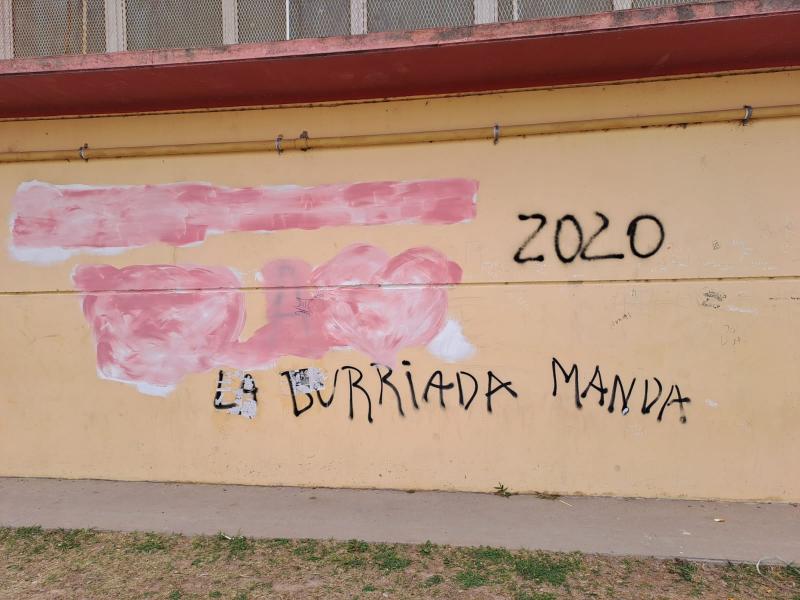 2020
LA BURRiADA MANDA